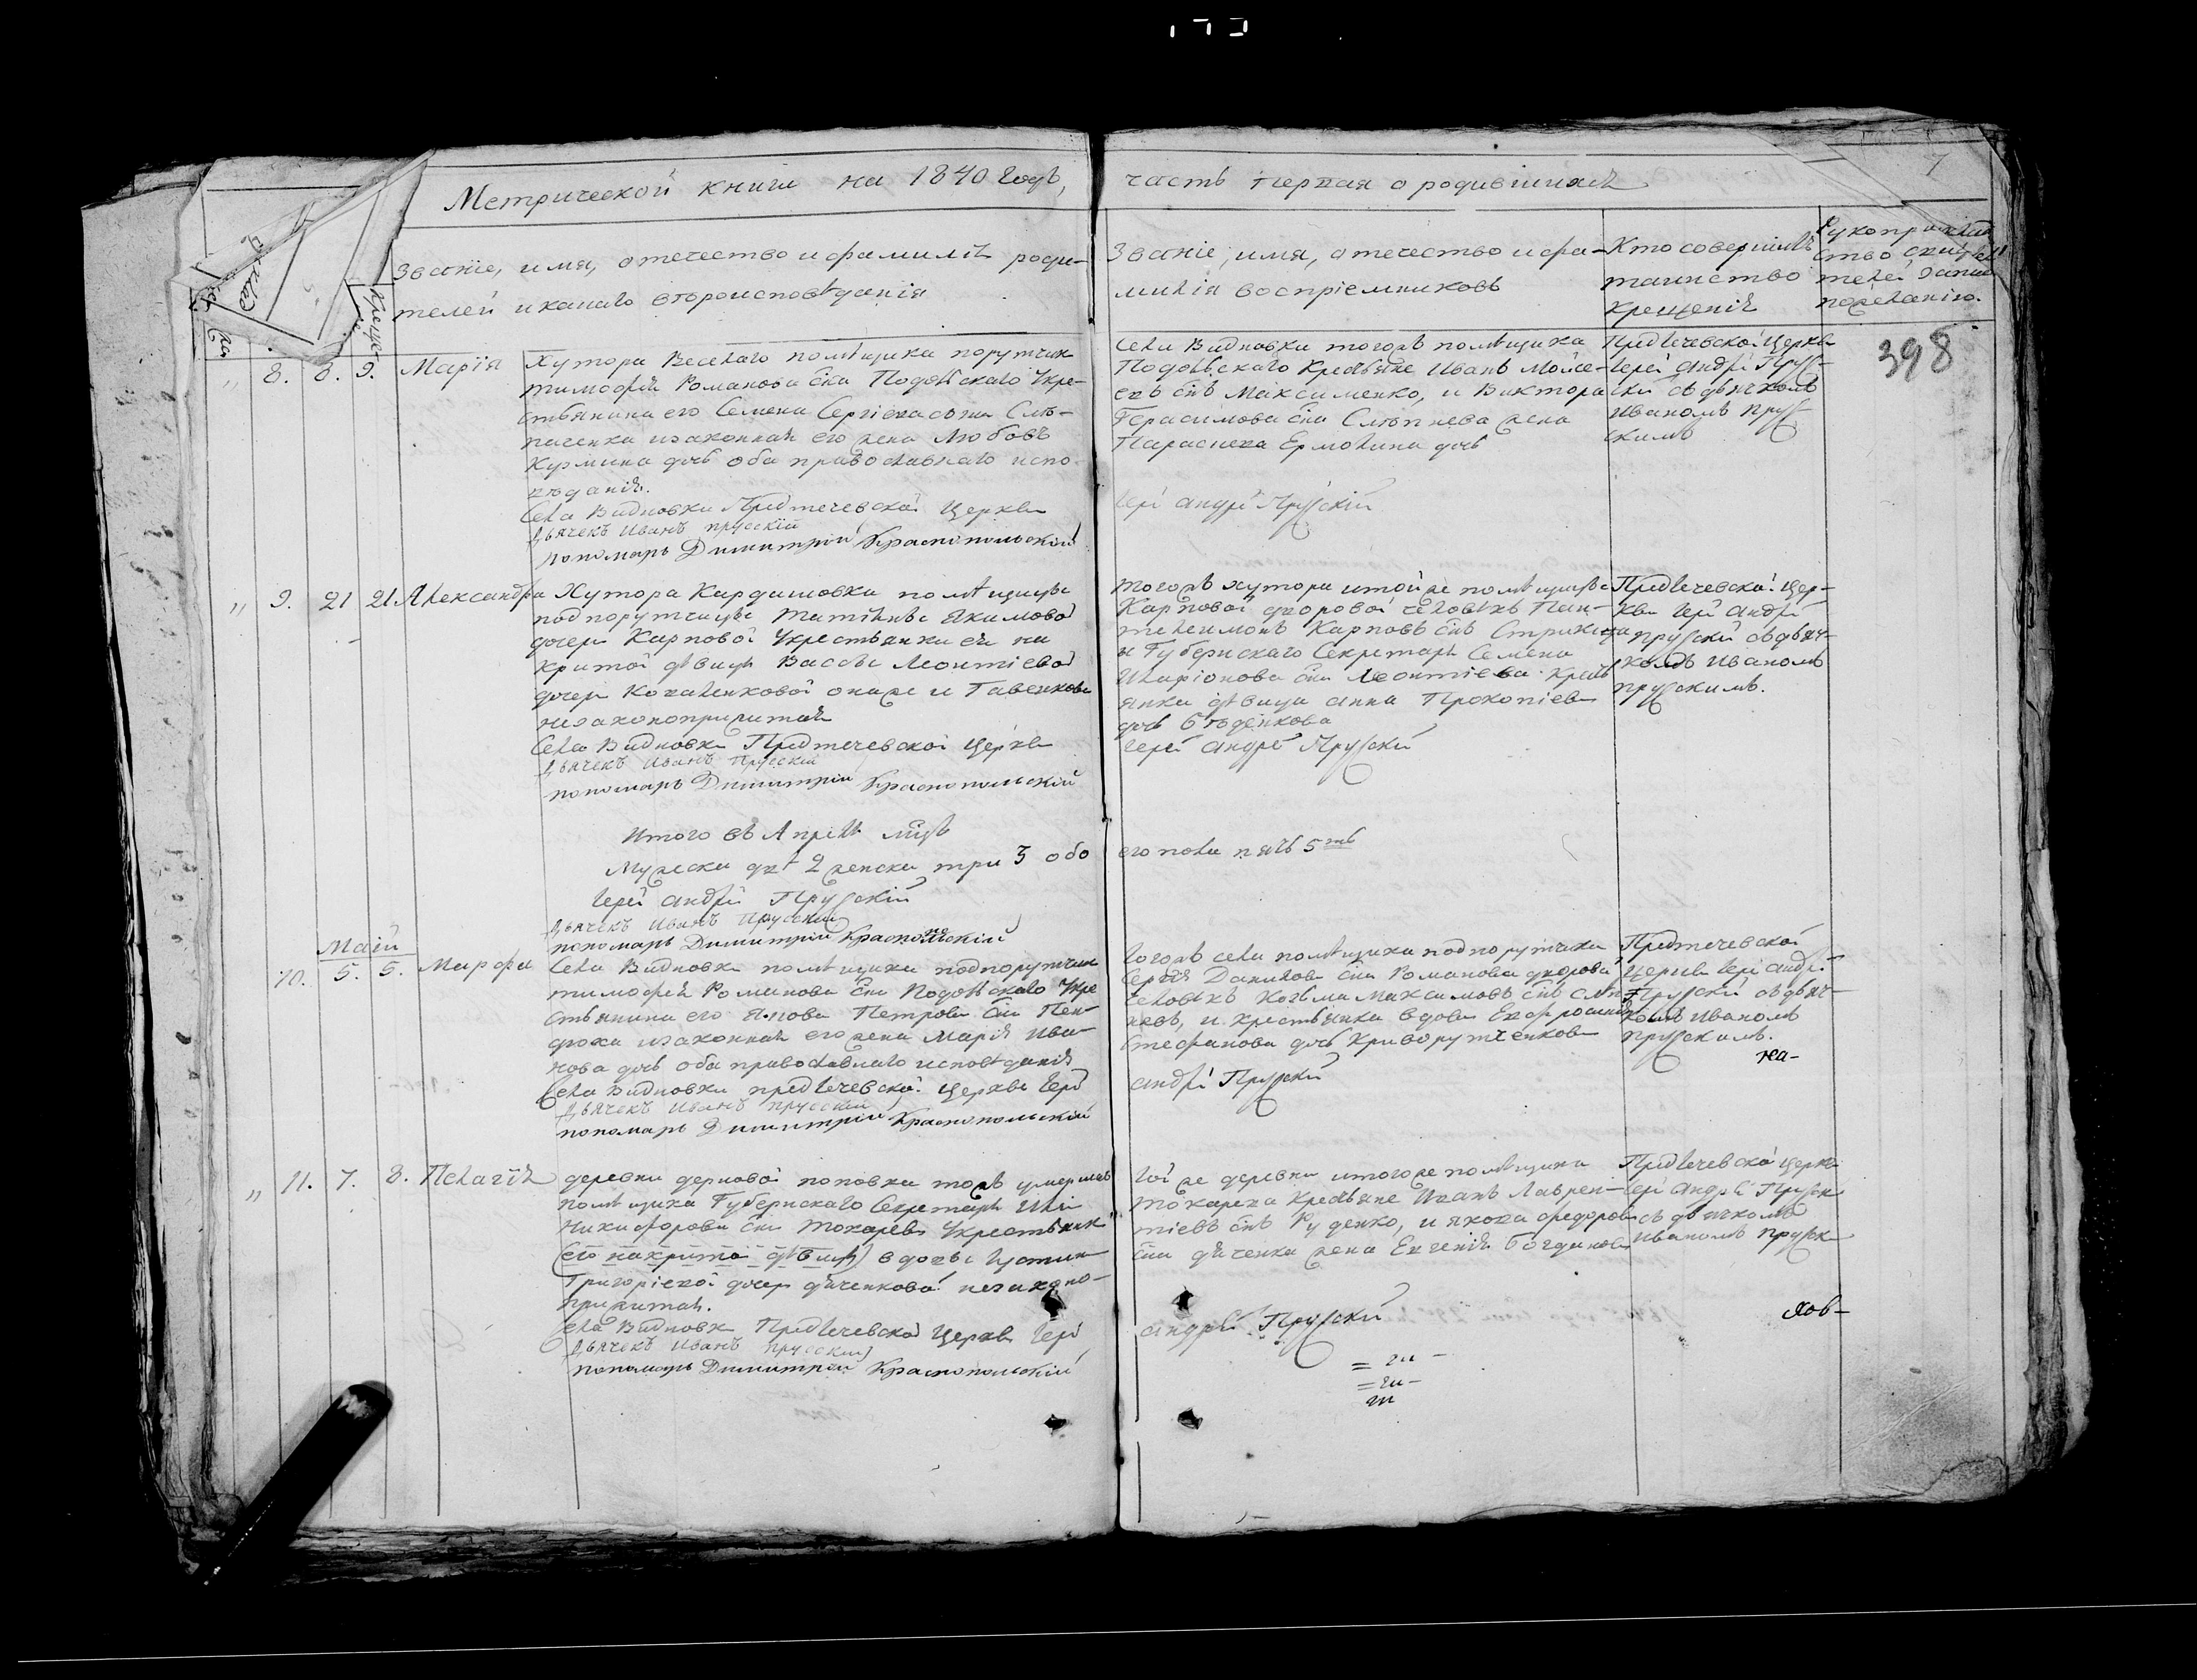 Метрической книги на 1840 Годъ,
часть первая о родившихся
7
Званіе, имя, отечество и фамилія роди-
телей и какаго вѣроисповѣданія
Званіе, имя, отечество и фа-
милія воспріемниковъ
Кто совершилъ
таинство
крещенія
Рукоприклад
ство свидѣ
телей записи
по желанію.
398
8. 8. 9. Марія
Хутора Веселаго помѣщика порутчик
тимофея Романова сна Подольскаго Укре-
стьянина его Семена Сергіева сына Слѣ-
паченка изаконная его жена Любовъ
Кузмина дочь оба православнаго испо-
вѣданія.
Села Видновки Предтечевской Церкви
Дьячекъ Иванъ Прусскій
пономарь Димитрій Краснопольскій
Села Видновки тогожъ помѣщика
Подольскаго Крестьяне Иванъ Мойсе-
евъ снъ Максименко, и Виктора
Герасимова сна Слѣпнева жена
Параскева Ермолина дочь
Іерей Андрей Прусскій
Предтечевской Церкви
Іерей Андрей Прус-
скій съ дьячкомъ
Иваномъ Прус-
скимъ
9. 21 21 Александра
Хутора Кардашовки помѣщицы
подпорутчицы Татіяны Якимовой
дочери Карповой Укрестьянки ея на
критой дѣвицы Вассы Леонтіевой
дочери Коваленковой онаже и Гавенкова
незаконоприжитая
Села Видновки Предтечевской Церкви
Дьячекъ Иванъ Прусскій
пономарь Димитрій Краснопольскій
тогожъ хутора итойже помѣщицы
Карповой дворовой человѣкъ Пан-
телеимонъ Карповъ снъ Стрижица
и Губернскаго Секретаря Семена
Иларіонова сна Леонтіева Крест
янка дѣвица Анна Прокопіева
дочь Бѣденкова
Іерей Андрей Прусскій
Предтечевской Цер-
кви Іерей Андрей
Прусскій съ дьяч-
комъ Иваномъ
Прусскимъ.
Итого въ Апрѣлѣ мцѣ
Мужеска два 2 женска три 3 обо
его пола пять 5ть
Іерей Андрей Прусскій
Дьячекъ Иванъ Прусскій
пономарь Димитрій Краснопольскій
Маій
10. 5. 5. Марфа
Села Видновки помѣщика подпорутчик
тимофея Романова сна Подольскаго Укре
стьянина его Якова Петрова сна Пен-
дюха изаконная его жена Марія Ива-
нова дочь оба православнаго исповѣданія
Села Видновки Предтечевской Церкви Іерей
Дьячекъ Иванъ Прусскій
пономарь Димитрій Краснопольскій
Тогожъ села помѣщика подпорутчика
Сергѣя Данилова сна Романова дворовой
человѣкъ Козьма Максимовъ снъ Слѣп
невъ, и крестьянка вдова Евфросинія
Стефанова дочь Криворутченкова
Андрей Прусскій
Предтечевской
Церкви Іерей Андрей
Прусскій съ дьяч-
комъ Иваномъ
Прусскимъ.
11. 7. 8. Пелагія
деревни дерновой поповки тожъ умершаго
помѣщика Губернскаго Секретаря Ильи
Никифорова сна Токарева Укрестьянк
(его накритой дѣвицы) вдовы Іустины
Григоріевой дочери дяченковой незаконо-
прижитая.
Села Видновки Предтечевской Церкви Іерей
Дьячекъ Иванъ Прусскій
пономарь Димитрій Краснопольскій
Тойже деревни итогоже помѣщика
Токарева Крестьяне Иванъ Лаврен-
тіевъ снъ Руденко, и Якова Федорова
сна дяченка жена Евгенія Богданова
Андрей Прусскій
Предтечевской Церкви
Іерей Андрей Прусск
съ дьячкомъ
Иваномъ Прусск